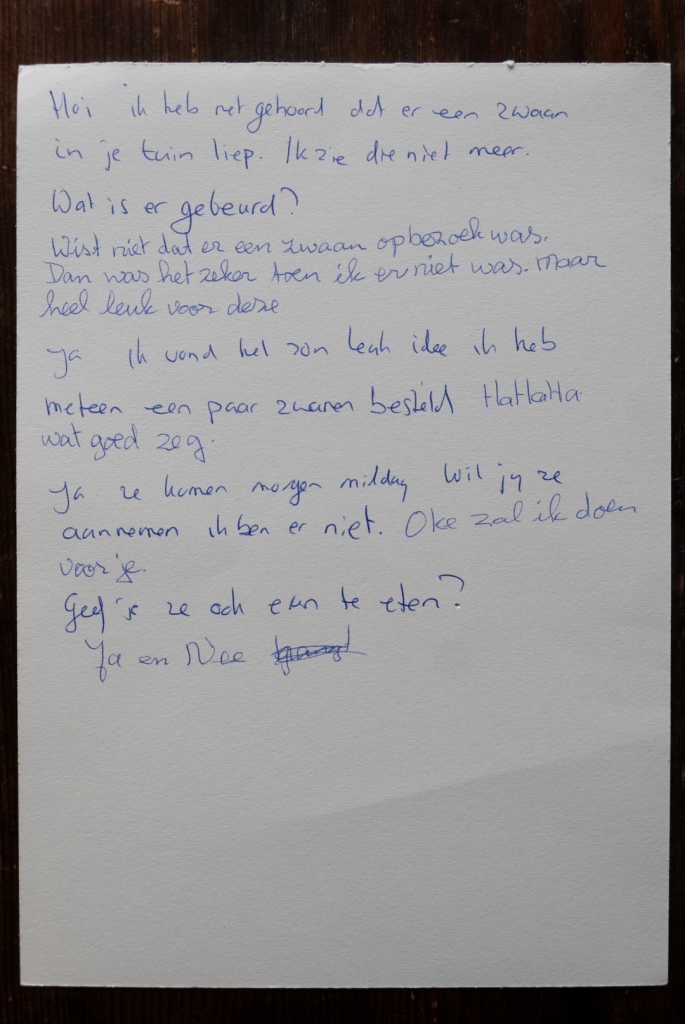 Hoi ik heb net gehoord dat er een zwaan
in je tuin liep. Ik zie die niet meer.
Wat is er gebeurd?
Wist niet dat er een zwaan op bezoek was.
Dan was het zeker toen ik er niet was. maar
heel leuk voor deze
Ja ik vond het zon leuk idee ik heb
meteen een paar zwanen besteld HaHaHa
wat goed zeg.
Ja ze komen morgen middag Wil jy ze
aannemen ik ben er niet. Oke zal ik doen
voor je.
Geef je ze ook even te eten?
Ja en Nee